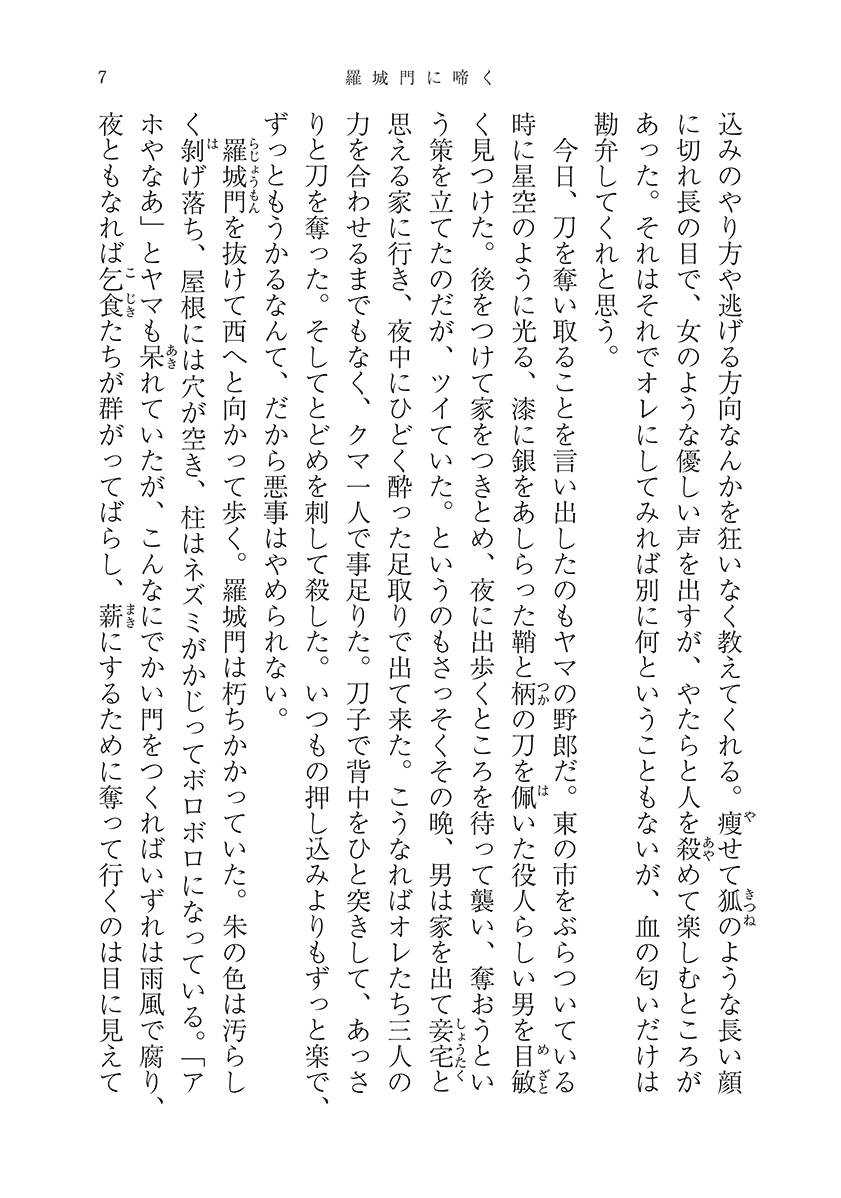 7
羅城門に啼く
込みのやり方や逃げる方向なんかを狂いなく教えてくれる。瘦せて狐のような長い顔
に切れ長の目で、女のような優しい声を出すが、やたらと人を殺めて楽しむところが
あった。それはそれでオレにしてみれば別に何ということもないが、血の匂いだけは
勘弁してくれと思う。
　今日、刀を奪い取ることを言い出したのもヤマの野郎だ。東の市をぶらついている
時に星空のように光る、漆に銀をあしらった鞘と柄の刀を佩いた役人らしい男を目敏
く見つけた。後をつけて家をつきとめ、夜に出歩くところを待って襲い、奪おうとい
う策を立てたのだが、ツイていた。というのもさっそくその晩、男は家を出て妾宅と
思える家に行き、夜中にひどく酔った足取りで出て来た。こうなればオレたち三人の
力を合わせるまでもなく、クマ一人で事足りた。刀子で背中をひと突きして、あっさ
りと刀を奪った。そしてとどめを刺して殺した。いつもの押し込みよりもずっと楽で、
ずっともうかるなんて、だから悪事はやめられない。
　羅城門を抜けて西へと向かって歩く。羅城門は朽ちかかっていた。朱の色は汚らし
く剝げ落ち、屋根には穴が空き、柱はネズミがかじってボロボロになっている。「ア
ホやなあ」とヤマも呆れていたが、こんなにでかい門をつくればいずれは雨風で腐り、
夜ともなれば乞食たちが群がってばらし、薪にするために奪って行くのは目に見えて
や
きつね
あや
つか
は
めざと
しょうたく
らじょうもん
は
あき
こじき
まき